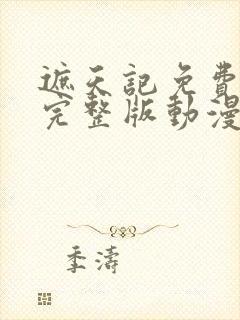 遮天記免費
完整版動漫
季濤